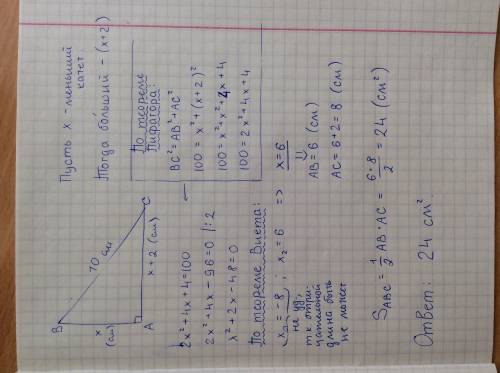 B
x
(см)
10 см
A
x+2 (см)
C
Пусть x - меньший
катет
Тогда больший - (x+2)
По теореме
Пифагора:
BC²=AB²+AC²
100 = x²+(x+2)²
100 = x²+x²+4x+4
100 = 2x²+4x+4
2x²+4x+4=100
2x²+4x-96=0 |:2
x²+2x-48=0
По теореме Виета:
x₁=-8; x₂=6 => x=6
не уд,
т к отри-
цательной
длина быть
не может
AB=6 (см)
AC=6+2=8 (см)
S ABC = 1/2 AB·AC = 6·8/2 = 24 (см²)
Ответ: 24 см².